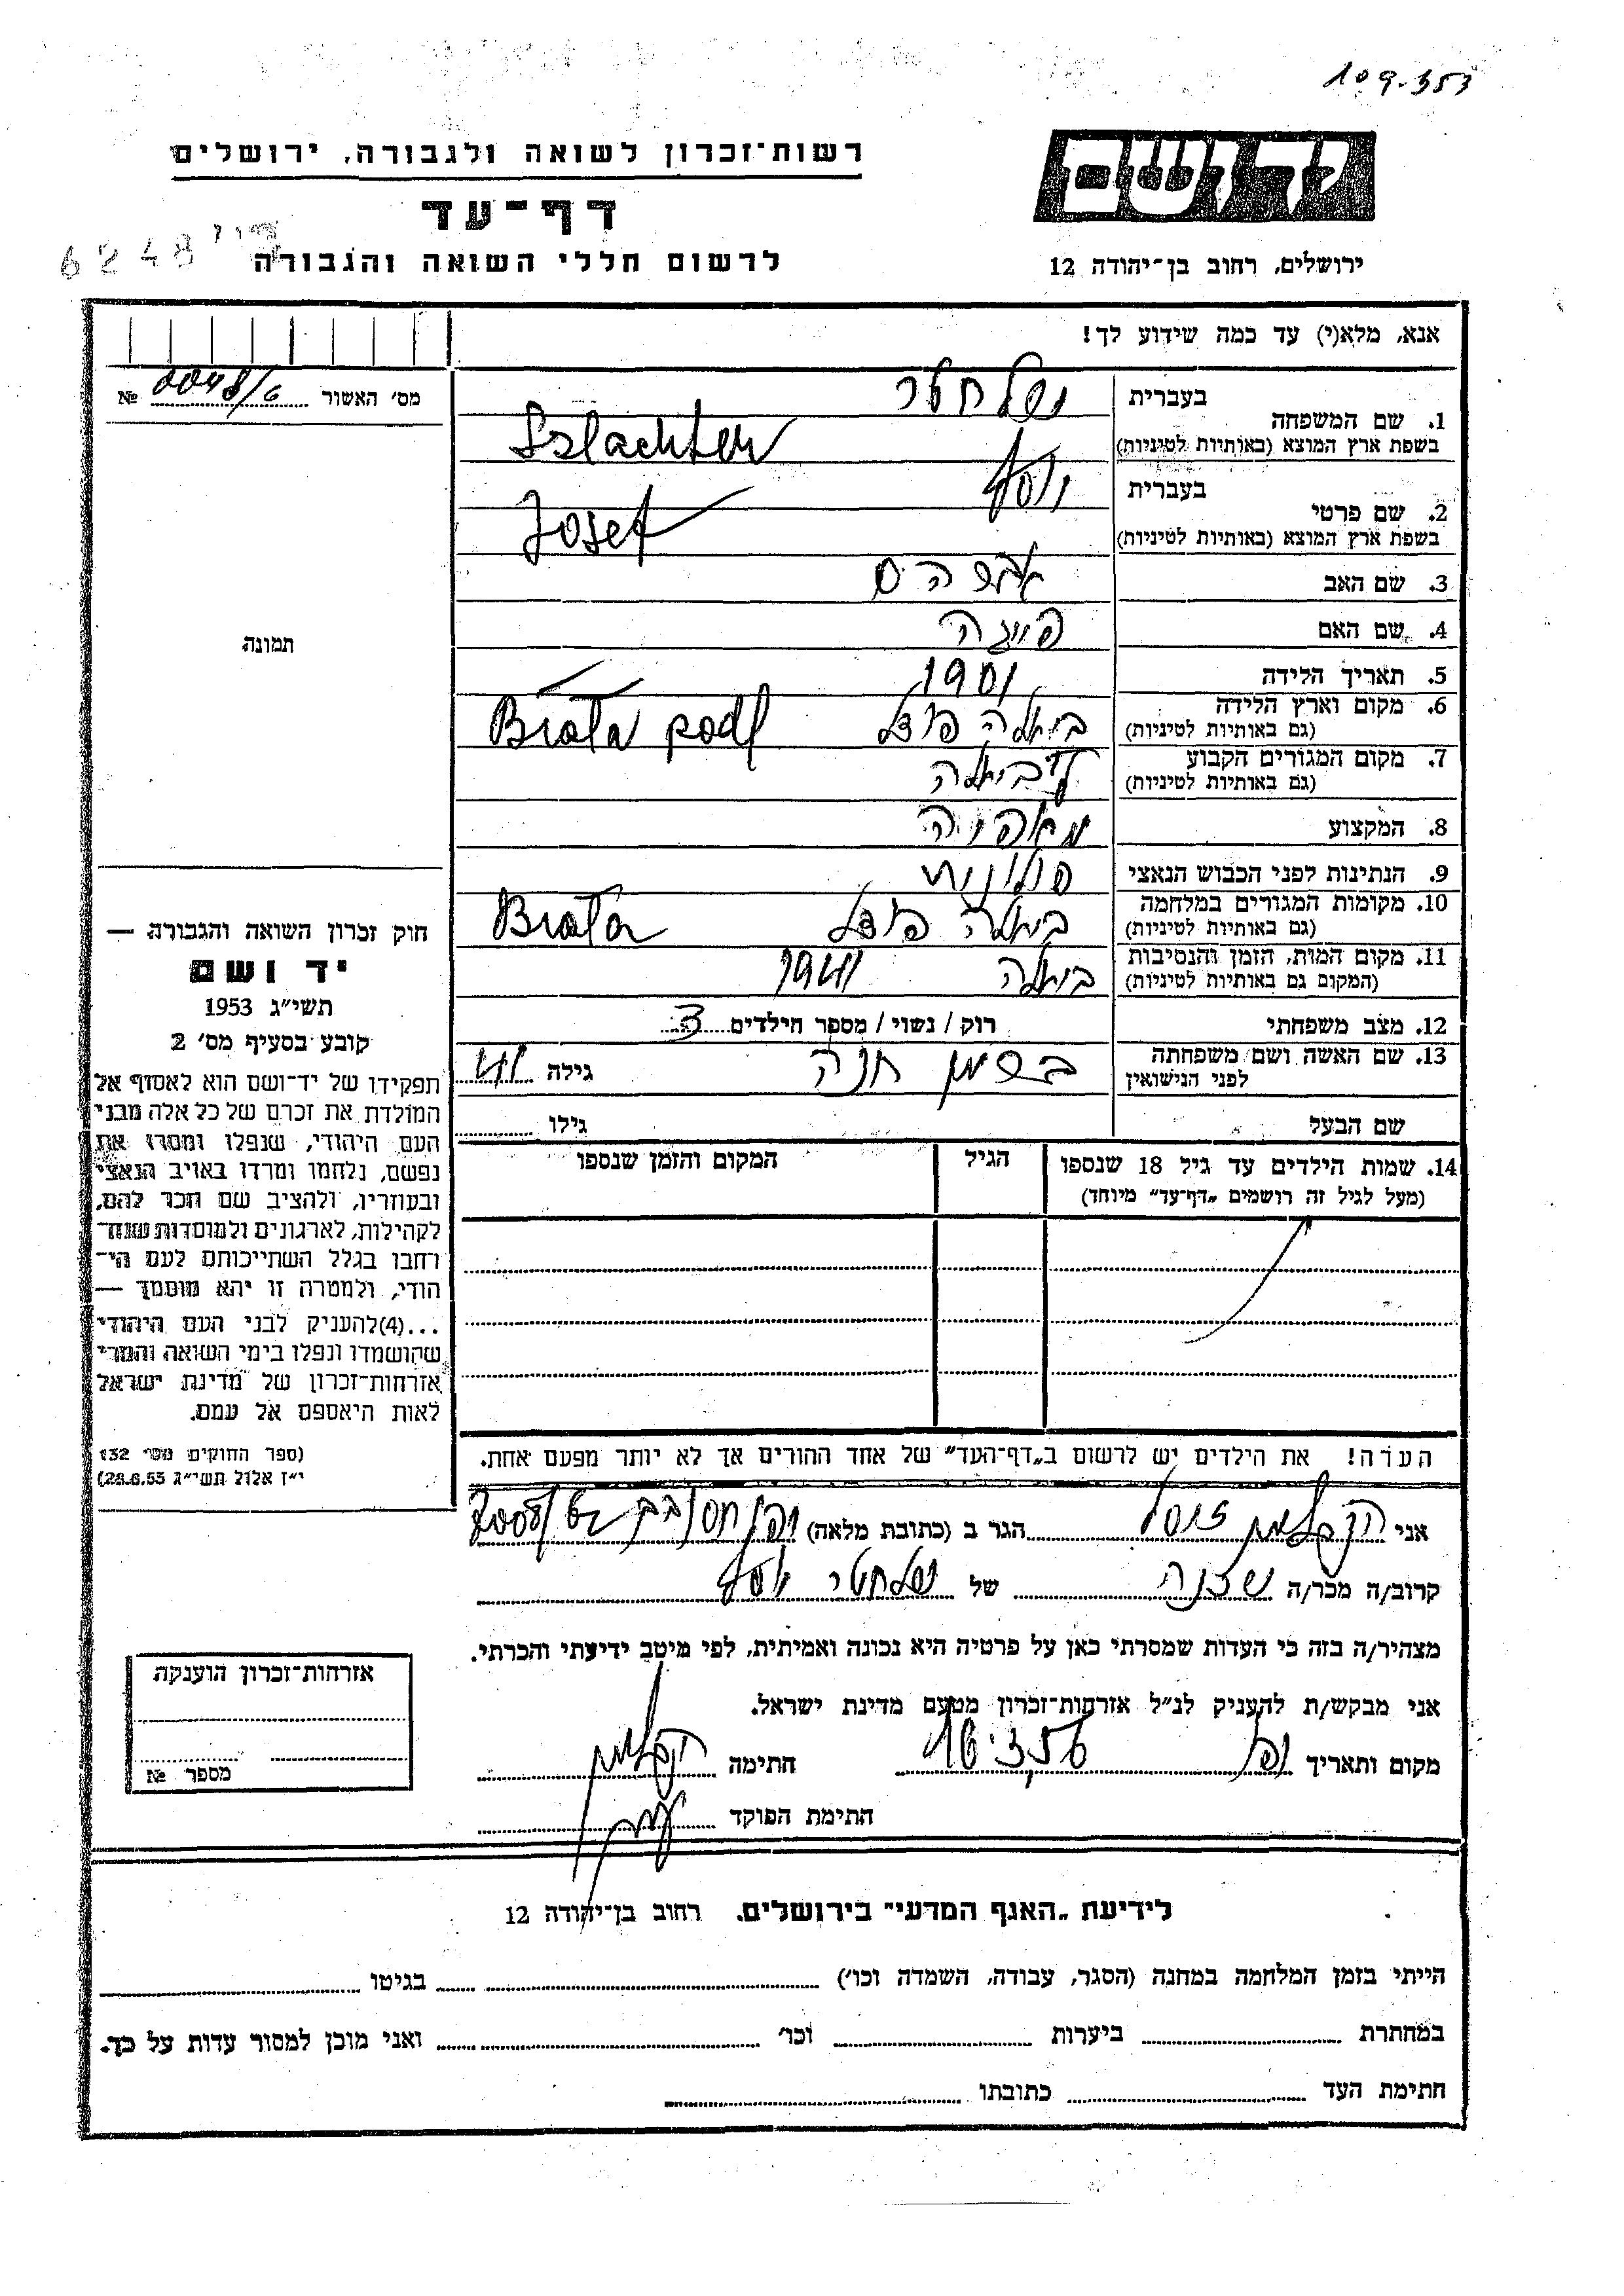 109.353
יד ושם
ירושלים, רחוב בן־יהודה 12
רשות־זכרון לשואה ולגבורה, ירושלים
דף־עד
לרשום חללי השואה והגבורה
6248
אנא, מלא(י) עד כמה שידוע לך!
מס' האשור №
1. שם המשפחה
בעברית שלחטר
בשפת ארץ המוצא (באותיות לטיניות) Szlachter
2. שם פרטי
בעברית יוסף
בשפת ארץ המוצא (באותיות לטיניות) Josef
3. שם האב אברהם
4. שם האם פייגה
5. תאריך הלידה 1901
6. מקום וארץ הלידה
(גם באותיות לטיניות) ביאלה פודל Biała podl
7. מקום המגורים הקבוע
(גם באותיות לטיניות) ביאלה
8. המקצוע
9. הנתינות לפני הכבוש הנאצי פולונית
10. מקומות המגורים במלחמה
(גם באותיות לטיניות) ביאלה פודל Biała
11. מקום המות, הזמן והנסיבות
(המקום גם באותיות לטיניות) ביאלה 1941
12. מצב משפחתי רוק / נשוי / מספר הילדים 3
13. שם האשה ושם משפחתה
לפני הנישואין חנה גילה 41
שם הבעל גילו
14. שמות הילדים עד גיל 18 שנספו הגיל המקום והזמן שנספו
(מעל לגיל זה רושמים "דף־עד" מיוחד)
הערה! את הילדים יש לרשום ב"דף־העד" של אחד ההורים אך לא יותר מפעם אחת.
אני הגר ב (כתובת מלאה)
קרוב/ה מכר/ה שכנה של שלחטר יוסף
מצהיר/ה בזה כי העדות שמסרתי כאן על פרטיה היא נכונה ואמיתית, לפי מיטב ידיעתי והכרתי.
אני מבקש/ת להעניק לנ"ל אזרחות־זכרון מטעם מדינת ישראל.
מקום ותאריך 16.3.56 חתימה
חתימת הפוקד
תמונה
חוק זכרון השואה והגבורה —
יד ושם
תשי"ג 1953
קובע בסעיף מס' 2
תפקידו של יד־ושם הוא לאסוף אל
המולדת את זכרם של כל אלה מבני
העם היהודי, שנפלו ומסרו את
נפשם, נלחמו ומרדו באויב הנאצי
ובעוזריו, ולהציב שם וזכר להם,
לקהילות, לארגונים ולמוסדות שנח־
רחבו בגלל השתייכותם לעם הי־
הודי, ולמטרה זו יהא מוסמך —
...(4)להעניק לבני העם היהודי
שהושמדו ונפלו בימי השואה והמרי
אזרחות־זכרון של מדינת ישראל
לאות היאספם אל עמם.
(ספר החוקים מס' 132
י"ז אלול תשי"ג 28.8.53)
אזרחות־זכרון הוענקה
מספר №
לידיעת "האגף המדעי" בירושלים, רחוב בן־יהודה 12
הייתי בזמן המלחמה במחנה (הסגר, עבודה, השמדה וכו') בגיטו
במחתרת ביערות וכו' ואני מוכן למסור עדות על כך.
חתימת העד כתובתו